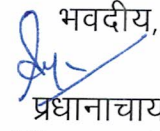 भवदीय,
प्रधानाचाय